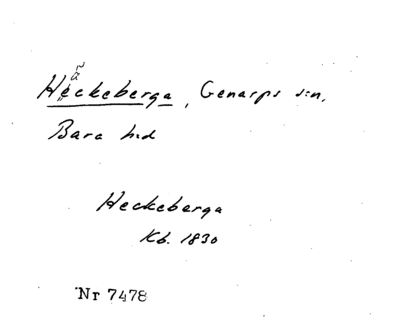 ã
Heckeberga, Genarps s:n,
Bara hd
Heckeberga
Kb. 1830
Nr 7478